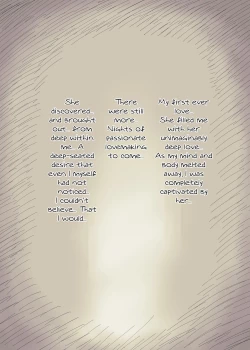 My first ever
love...
She filled me
with her
unimaginably
deep love...
As my mind and
body melted
away, I was
completely
captivated by
her...
There
were still
more
Nights of
passionate
lovemaking
to come...
She
discovered,
and brought
out, from
deep within
me... A
deep-seated
desire that
even I myself
had not
noticed.
I couldn't
believe... That
I would...